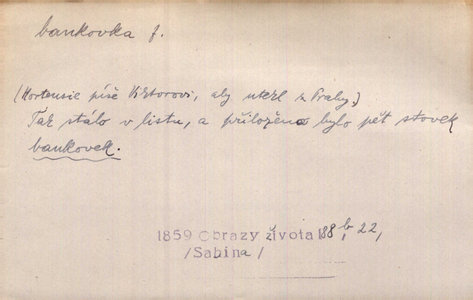 bankovka f.
(Hortensie píše Viktorovi, aby utekl z Prahy,)
Tak stálo v listu, a přiloženo bylo pět stovek
bankovek.
1859 Obrazy života 188 b, 22,
/Sabina/